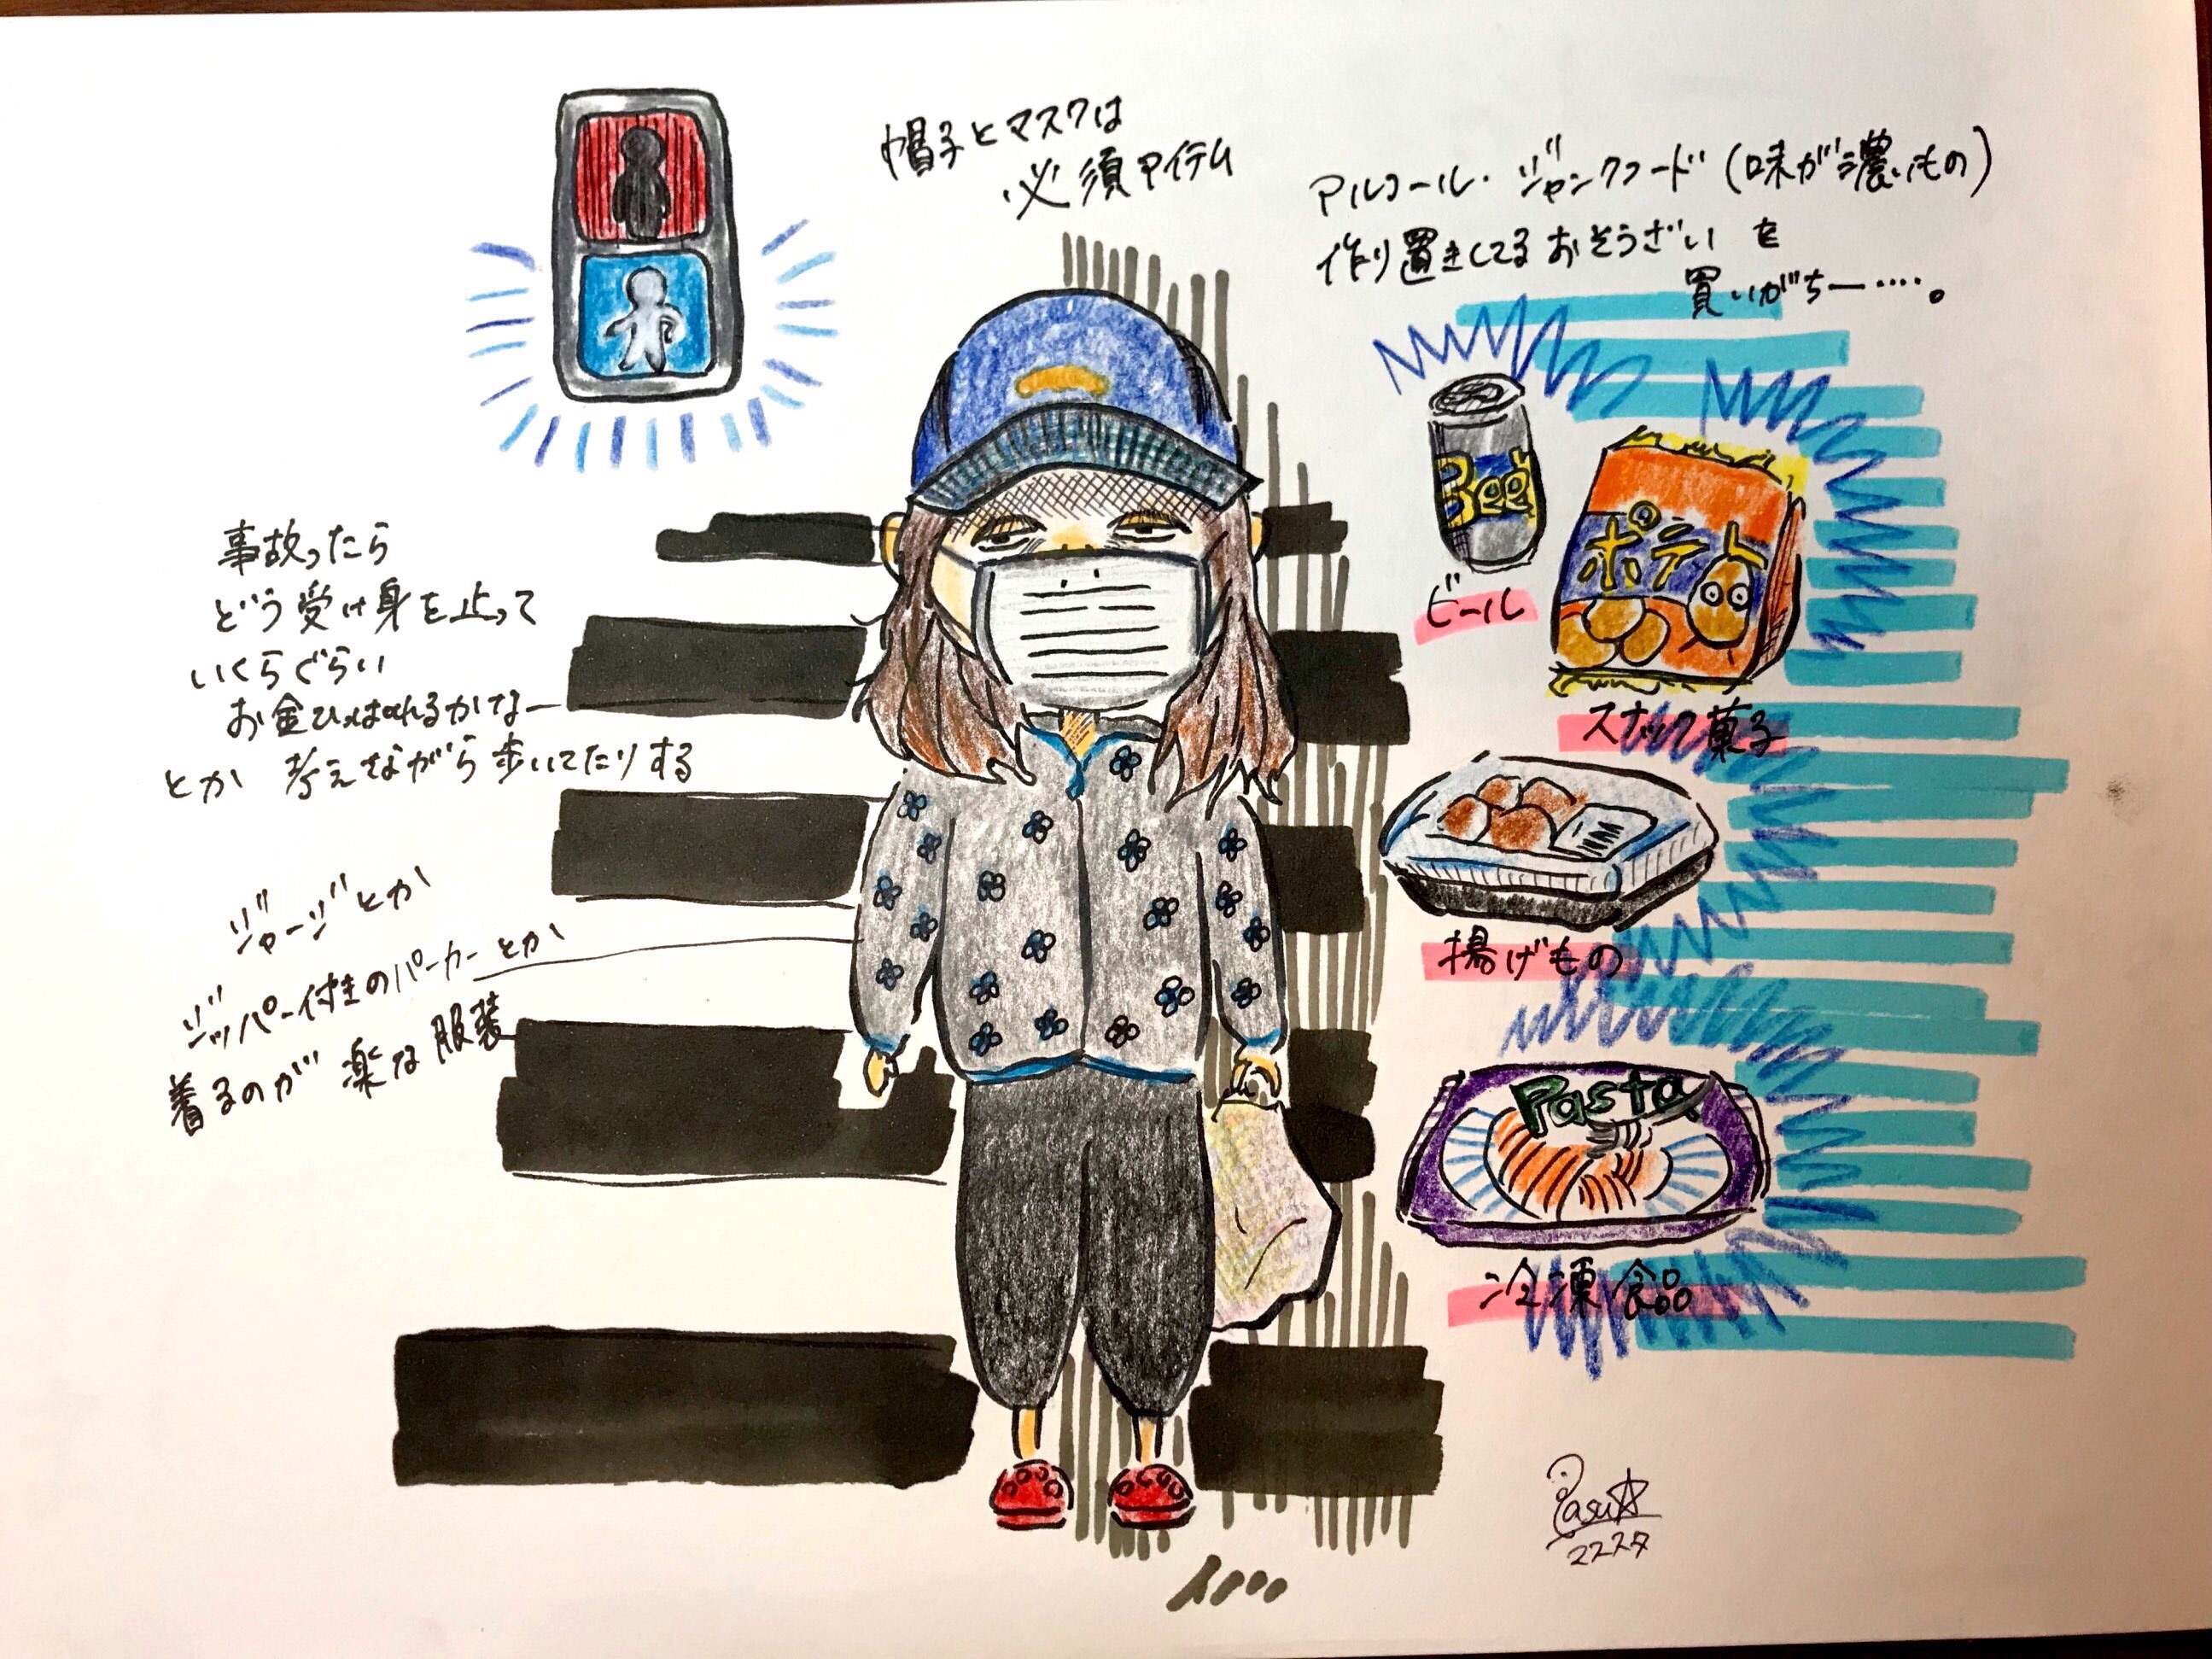 帽子とマスクは
必須アイテム
アルコール・ジャンクフード(味が濃いもの)
作り置きしてるおそうざいを
買いがちー····。
Beer
ビール
ポテト
スナック菓子
揚げもの
Pasta
冷凍食品
事故ったら
どう受け身を止って
いくらぐらい
お金ひっぱれるかなー
とか 考えながら歩いてたりする
ジャージとか
ジッパー付きのパーカーとか
着るのが楽な服装